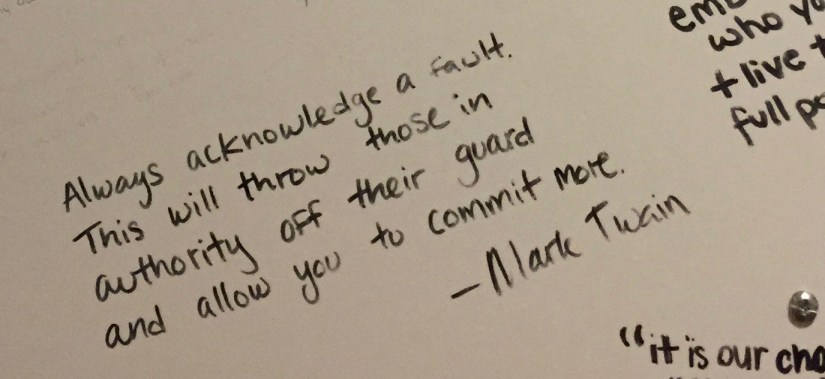 Always acknowledge a fault.
This will throw those in
authority off their guard
and allow you to commit more.
– Mark Twain
who
+ live
full
"it is our